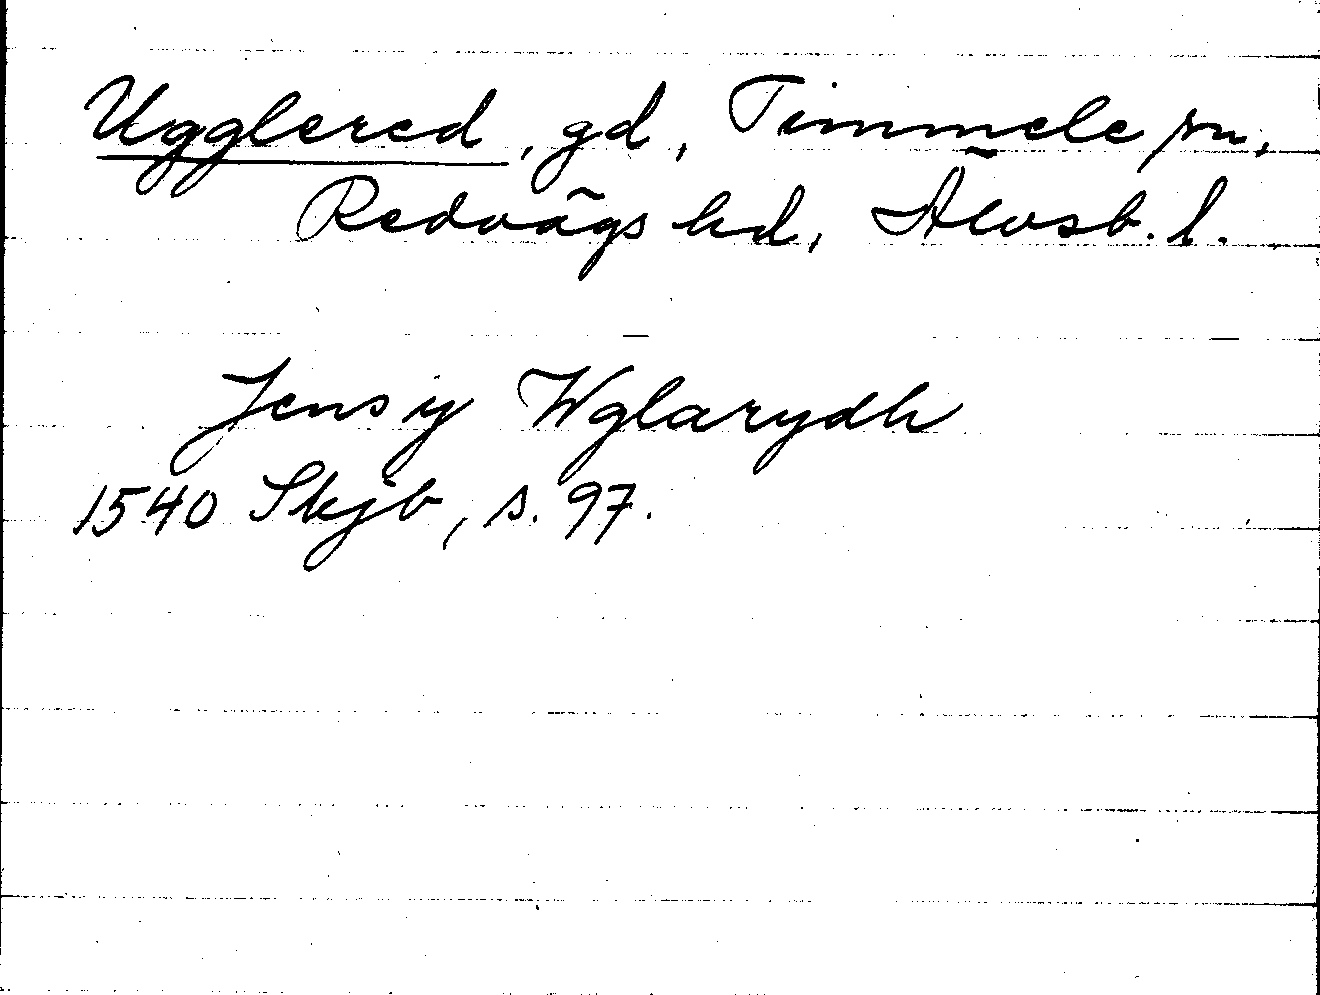 Ugglered, gd, Timmele sn,
Redvägs hd, Älvsb. l.
Jens ij Wglarydh
1540 Skjb, s. 97.